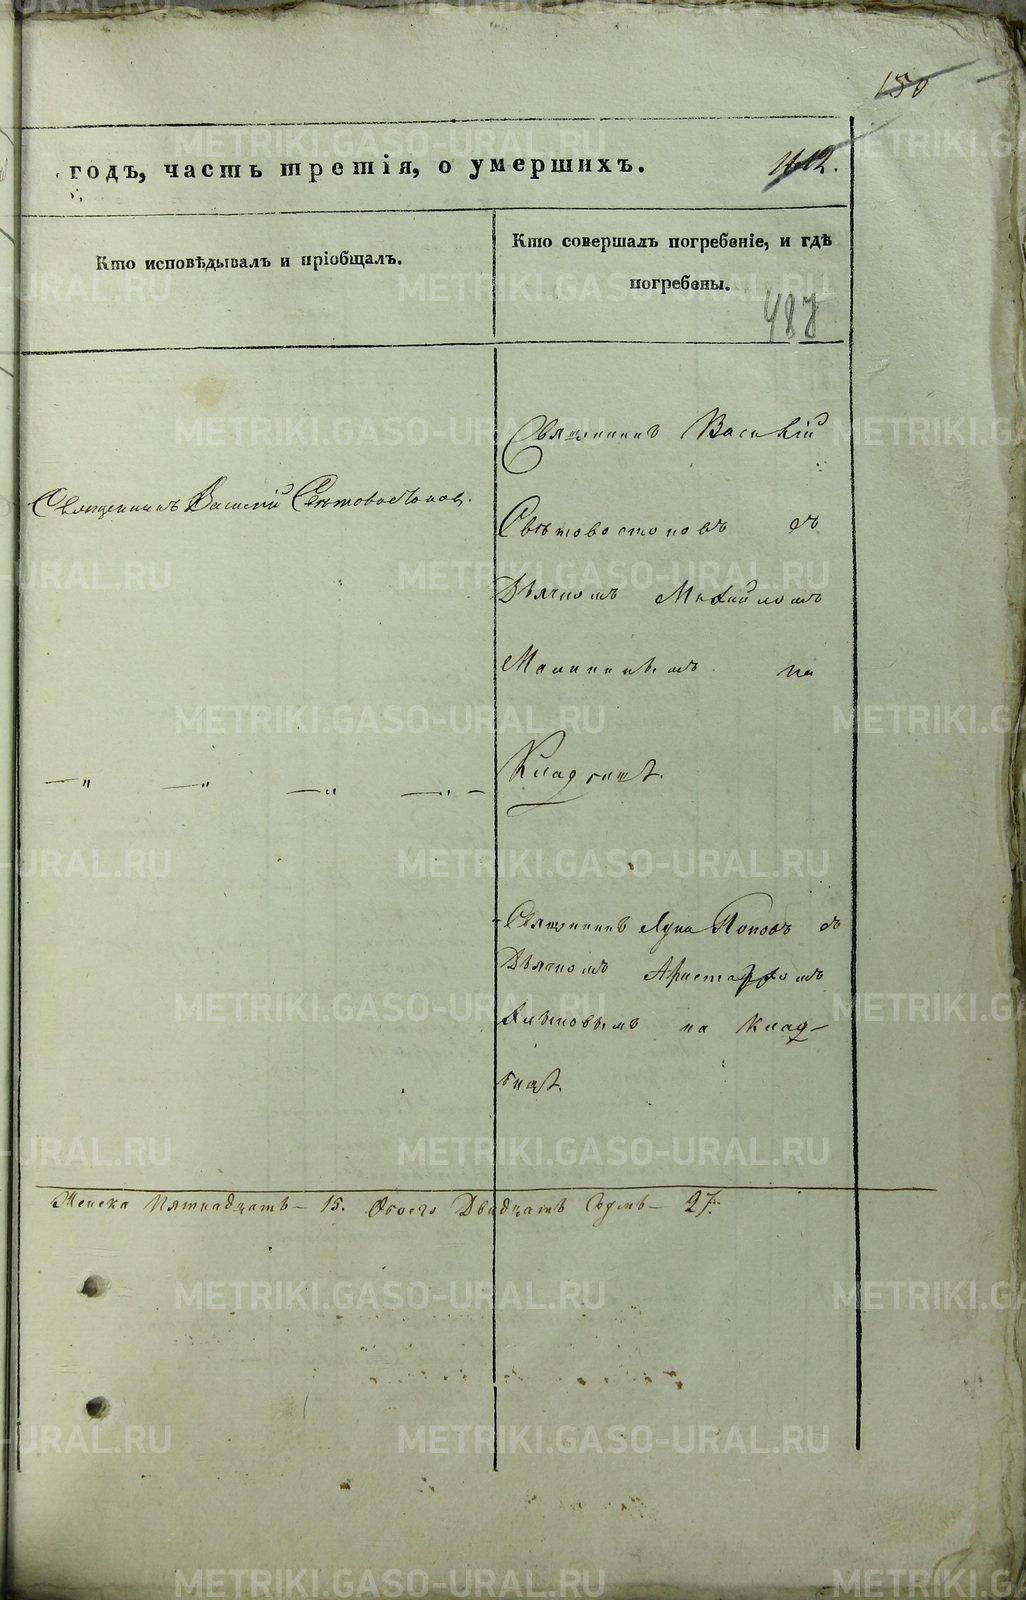 150
годъ, часть третія, о умершихъ.
Кто исповѣдывалъ и пріобщалъ.
Кто совершалъ погребеніе, и гдѣ
погребены.
487
Священникъ Василій Свѣтовостоковъ.
Священникъ Василій
Свѣтовостоковъ съ
Дьячкомъ Михайломъ
на
Кладбищѣ.
Священникъ Лука Поповъ съ
Дьячкомъ Аристархомъ
на Клад-
бищѣ.
Женска Пятнадцать – 15. Обоего Двадцать Седмь – 27.
METRIKI.GASO-URAL.RU